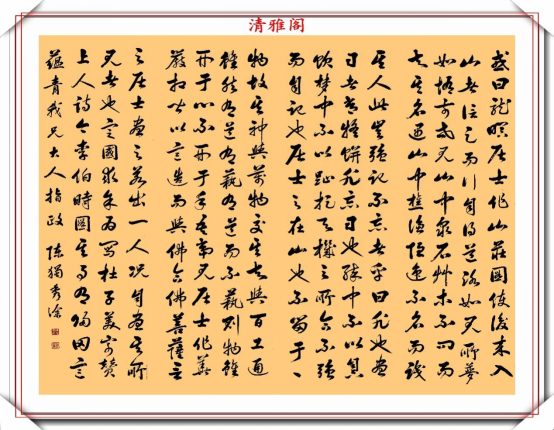 清雅阁
或曰龍眠居士作山莊圖使後來入
山者信足而行自得道路如見所夢
如悟前世見山中泉石艸木不問而
知其名遇山中樵漁隱逸不名而識
其人此豈強記不忘者乎曰非也畫
日者常疑餅非忘日也醉中不以鼻
飲夢中不以趾捉天機之所合不強
而自記也居士之在山也不留于一
物故其神與萬物交其智與百工通
雖然有道有藝有道而不藝則物雖
形于心不形于手吾嘗見居士作華
嚴相皆以意造而與佛合佛菩薩言
之居士畫之若出一人況自畫其所
見者也定國求余為寫杜子美寄贊
上人詩令李伯時圖其事有歸田意
蘊青我兄大人指政 陳獨秀塗